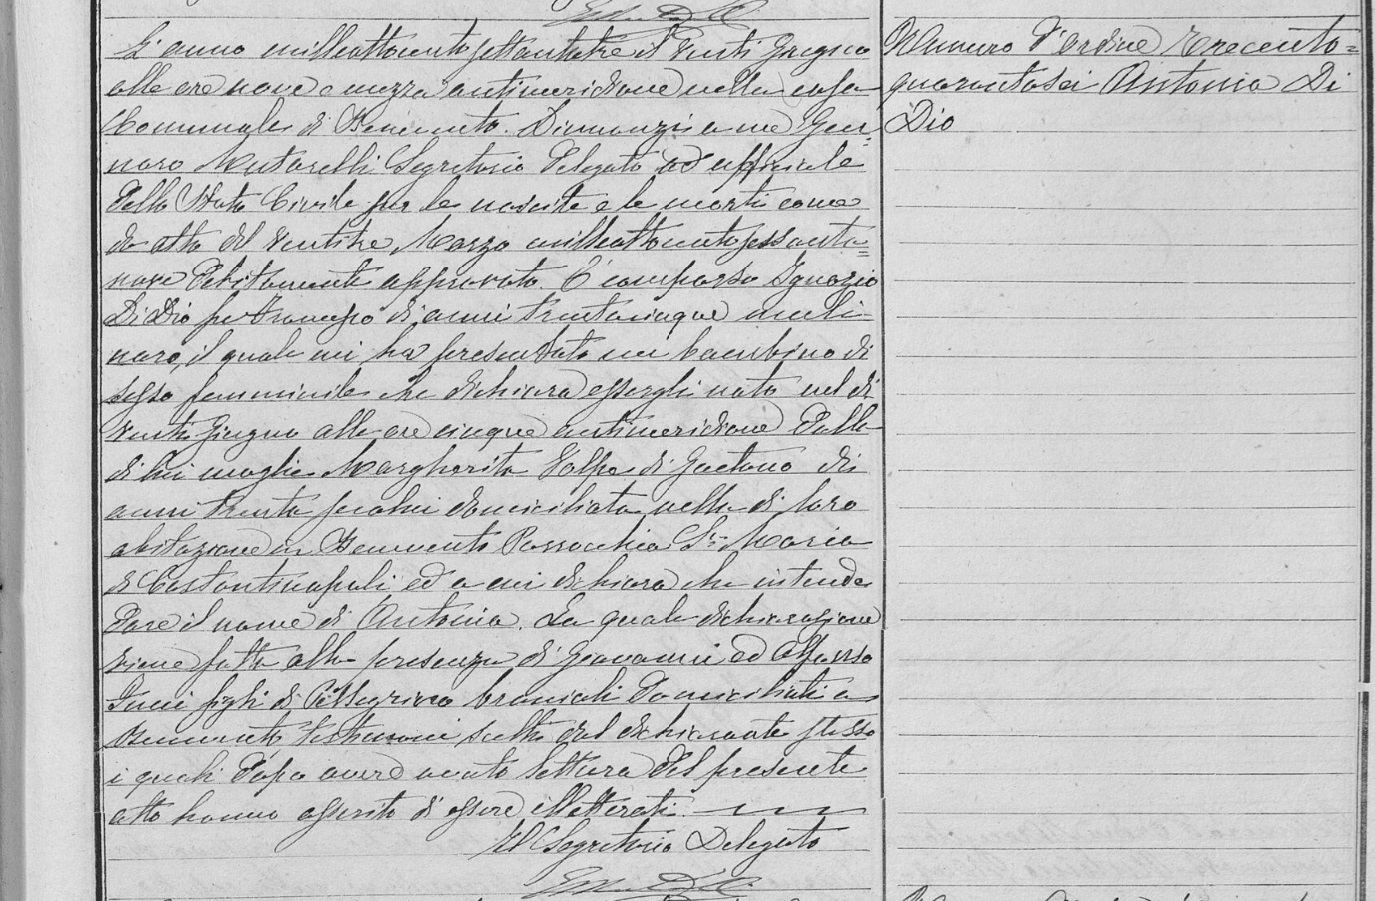 L'anno milleottocento settantatre il venti Giugno
alle ore nove e mezza antimeridiane nella casa
Comunale di Benevento. Dinnanzi a me Gen=
naro Mutarelli Segretario Delegato ad uffiziale
dello Stato Civile per le nascite e le morti come
da atto del ventitre Marzo milleottocentosessanta=
nove debitamente approvato. È comparso Ignazio
Di Dio fu di anni trentacinque muli-
naro, il quale mi ha presentato un bambino di
sesso femminile che dichiara essergli nato nel di
venti Giugno alle ore cinque antimeridiane dalla
di lui moglie Margherita Volpe di Gaetano di
anni trenta seco lui domiciliata nella di loro
abitazione in Benevento Parrocchia S. Maria
di Costantinopoli, ed a cui dichiara che intende
dare il nome di Antonia. La quale dichiarazione
viene fatta alla presenza di Giovanni ed Alfonso
figli di Pellegrino braciali domiciliati a
Benevento testimoni scelti dal dichiarante stesso
i quali dopo avere avuto lettura del presente
atto hanno asserito di essere illetterati.
Il Segretario Delegato
Numero d'ordine Trecento=
quarantasei Antonia Di
Dio